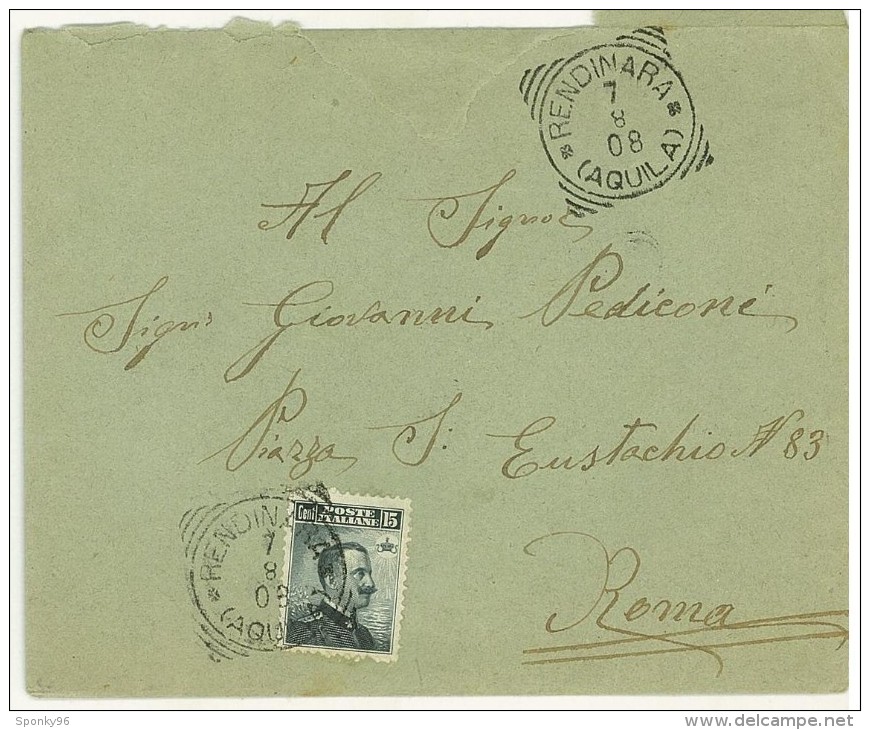 RENDINARA
7
8
08
(AQUILA)
Al Signor
Sign.r Giovanni Pediconi
Piazza S. Eustachio N 83
Roma
Cent POSTE ITALIANE 15
RENDINARA
7
8
08
(AQUILA)
Sponky96
www.delcampe.net